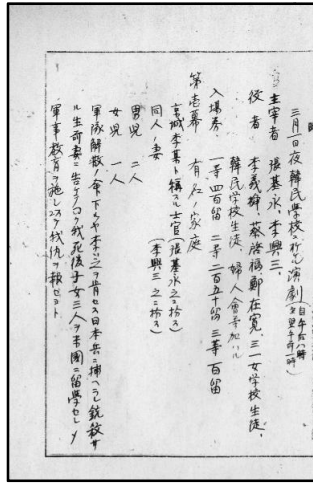 三月一日夜韓民學校ニ於ケル演劇(自午后八時至翌午前一時)
主宰者 張基永、李興三、
役者 李義樺、蔡啓福、鄭在寬、三一女学校生徒、
韓民学校生徒、婦人會等加ハル
入場券 一等四百留 二等二百五十留 三等百留
第壱幕 有名ノ家庭
京城李某ト稱スル士官(張基永之ニ扮ス)
同人ノ妻 (李興三之ニ扮ス)
男児 二人
女児 一人
軍隊解散ノ命下ルヤ李ハ之ヲ肯セス日本兵ニ捕ヘラレ銃殺サ
ル生前妻ニ告ケテ曰ク我死後子女三人ヲ米國ニ留學セシメ
軍事教育ヲ施シ以テ我仇ヲ報セヨト